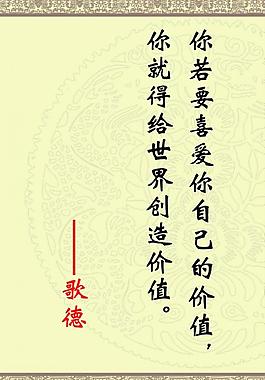 你若要喜爱你自己的价值，
你就得给世界创造价值。
——歌德